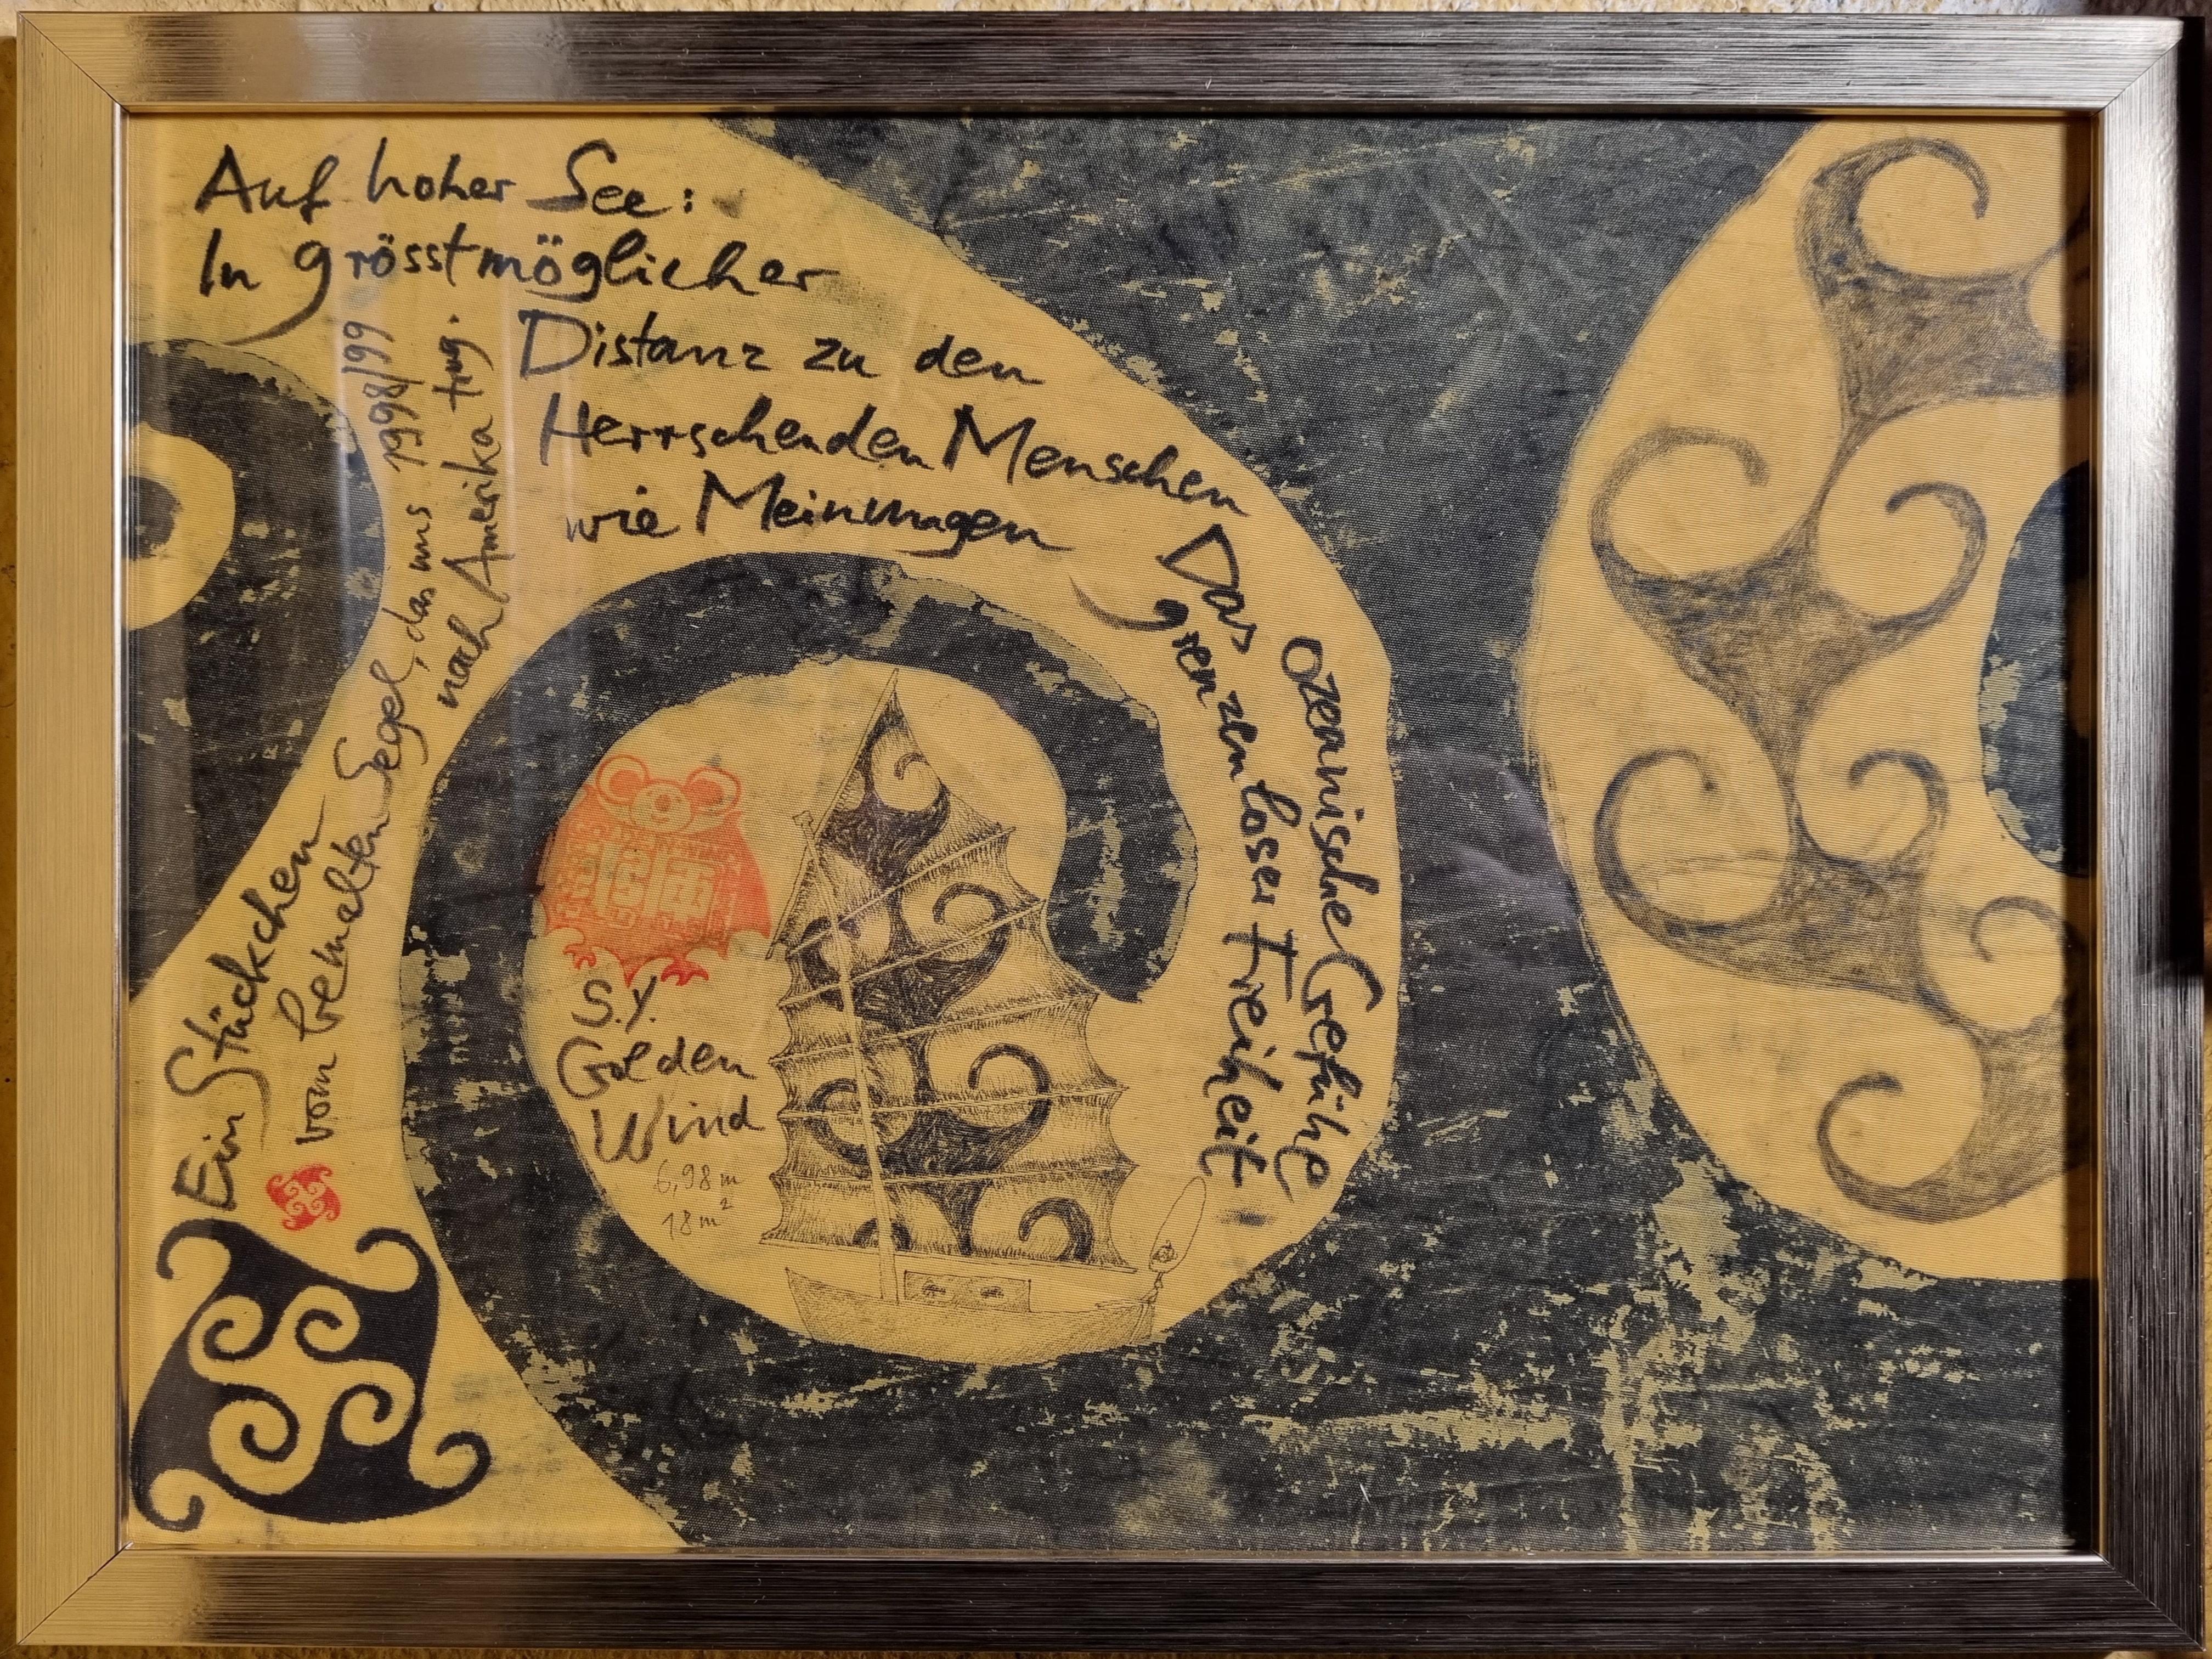 Auf hoher See:
In grösstmöglicher
Distanz zu den
Herrschenden Menschen
wie Meinungen
Das ozeanische Gefühl
grenzenloser Freiheit
Ein Stückchen
vom bemalten Segel, das uns 1998/99
nach Amerika trug.
S.Y.
Golden
Wind
6,98 m
18 m²